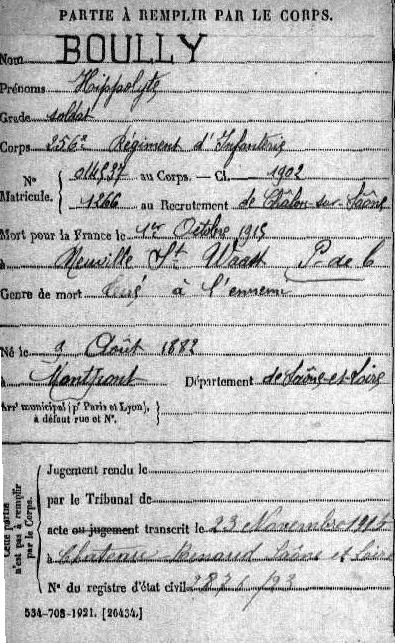 PARTIE À REMPLIR PAR LE CORPS.
Nom BOULLY
Prénoms Hippolyte
Grade soldat
Corps 256e Régiment d'Infanterie
N° Matricule. 014537 au Corps. — Cl. 1902
1266 au Recrutement de Châlon-sur-Saône
Mort pour la France le 1er Octobre 1915
à Neuville St Waast P. de C
Genre de mort Tué à l'ennemi
Né le 9 Août 1882
à Montpont Département de Saône-et-Loire
Arrt municipal (pr Paris et Lyon), à défaut rue et N°.
Cette partie n'est pas à remplir par le Corps.
Jugement rendu le
par le Tribunal de
acte ou jugement transcrit le 23 Novembre 1915
à Chateau Renaud Saône et Loire
N° du registre d'état civil 2876/93
534-708-1921. [26434.]